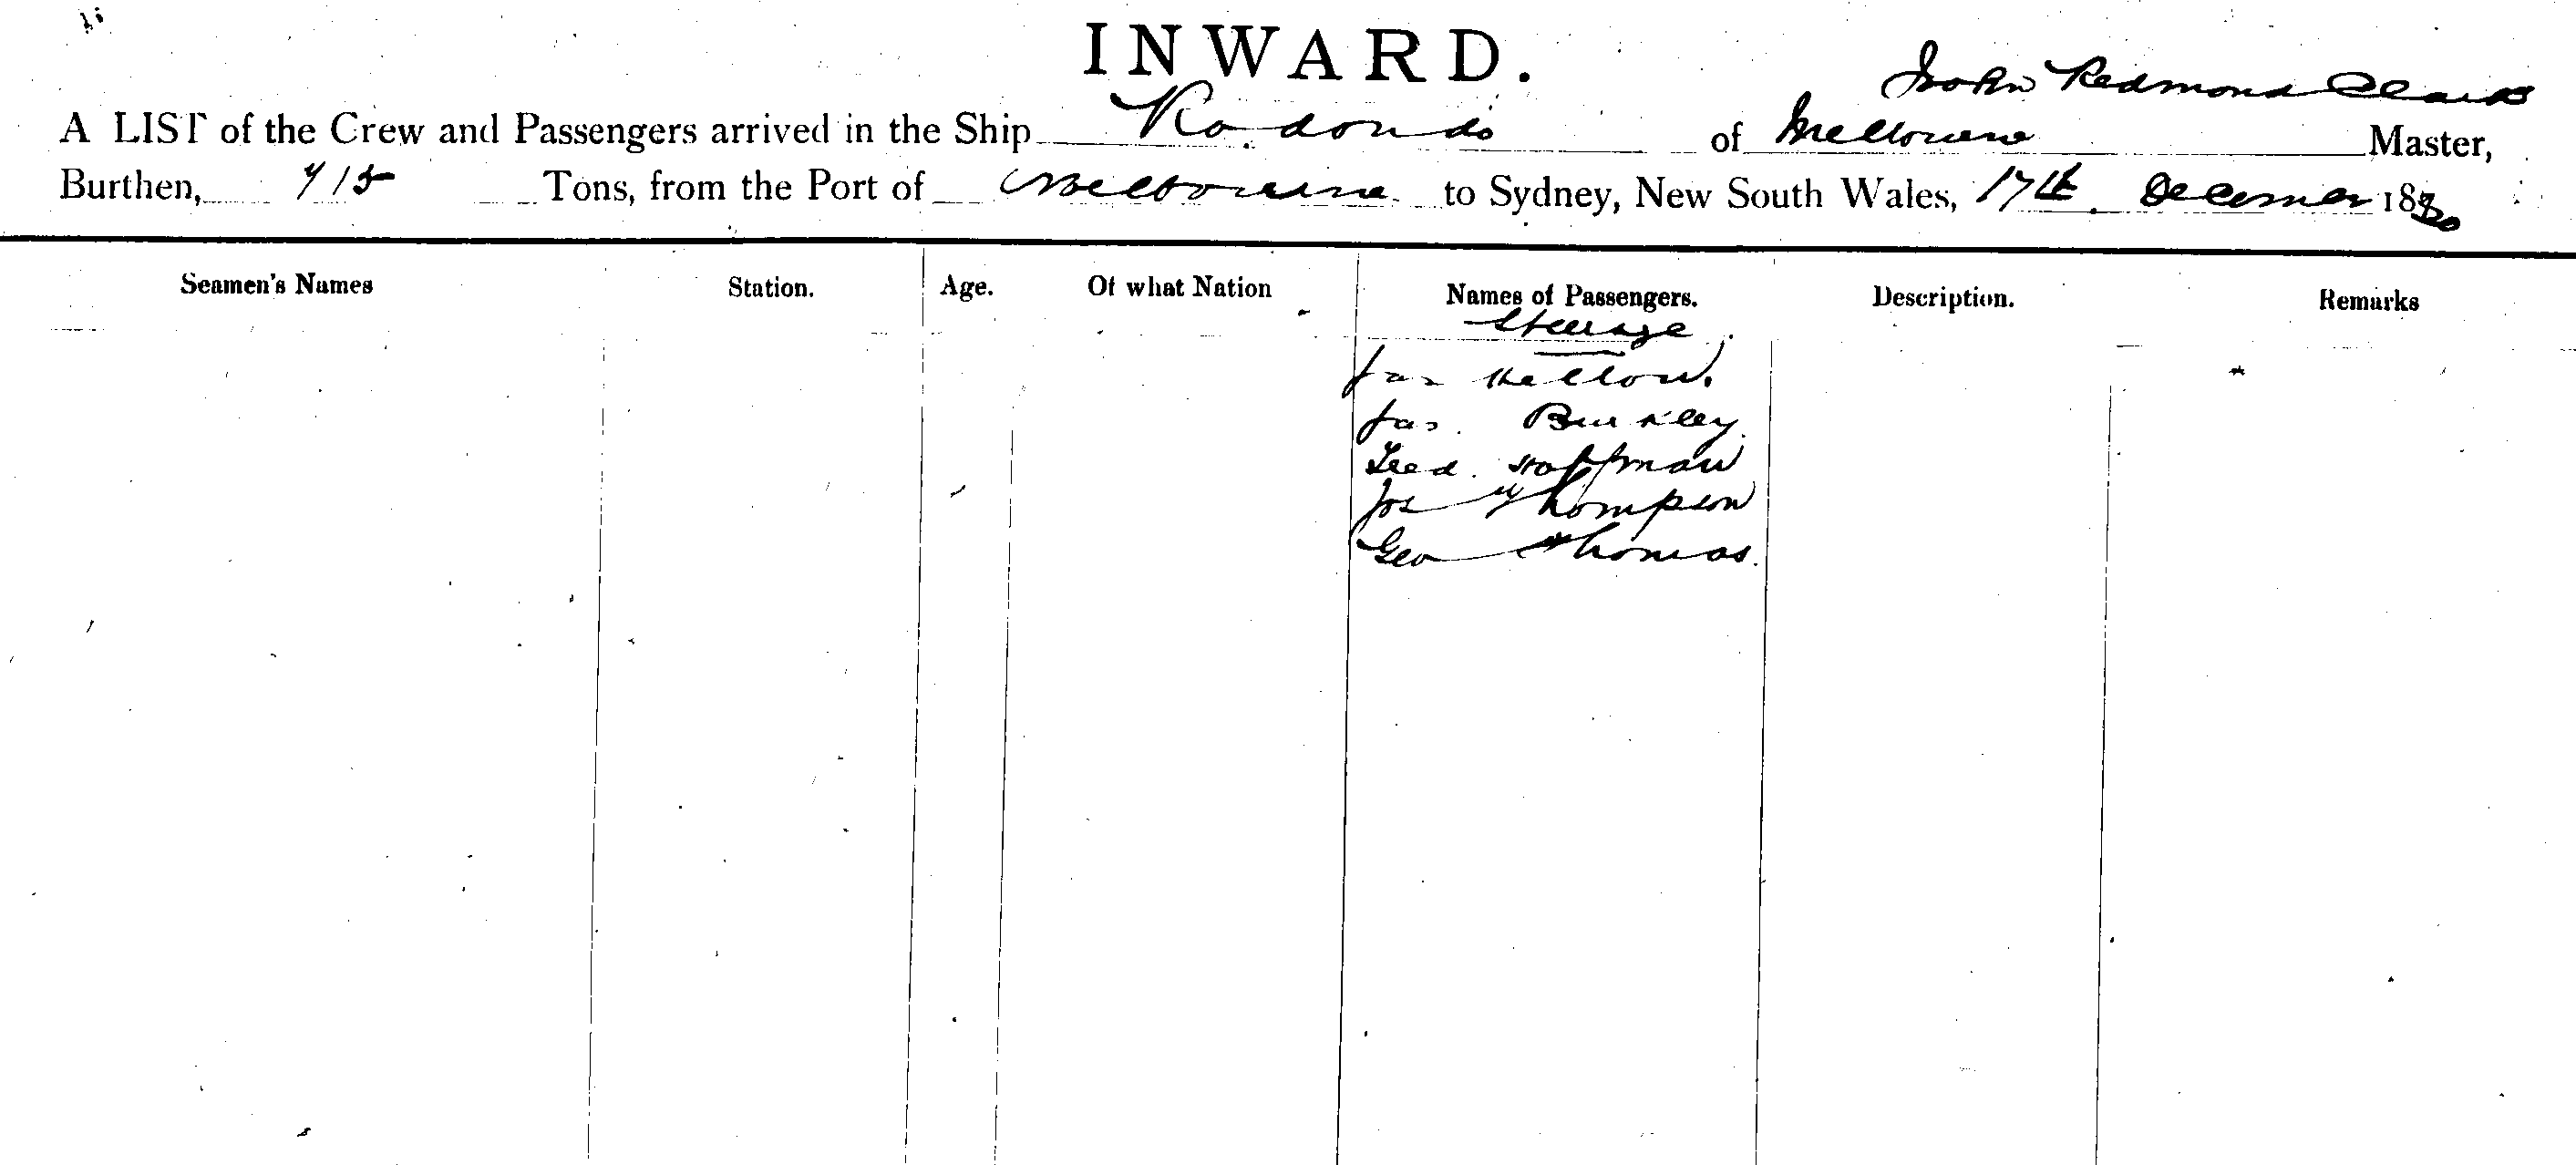 INWARD.
John Redmond Clark
A LIST of the Crew and Passengers arrived in the Ship Rodondo of Melbourne Master,
Burthen, 715 Tons, from the Port of Melbourne to Sydney, New South Wales, 17th December 1880
Seamen's Names Station. Age. Of what Nation Names of Passengers. Description. Remarks
Steerage
Jas Kellow.
Jas. Burkley.
Fred. Hoffman
Jos Thompson
Geo Thomas.